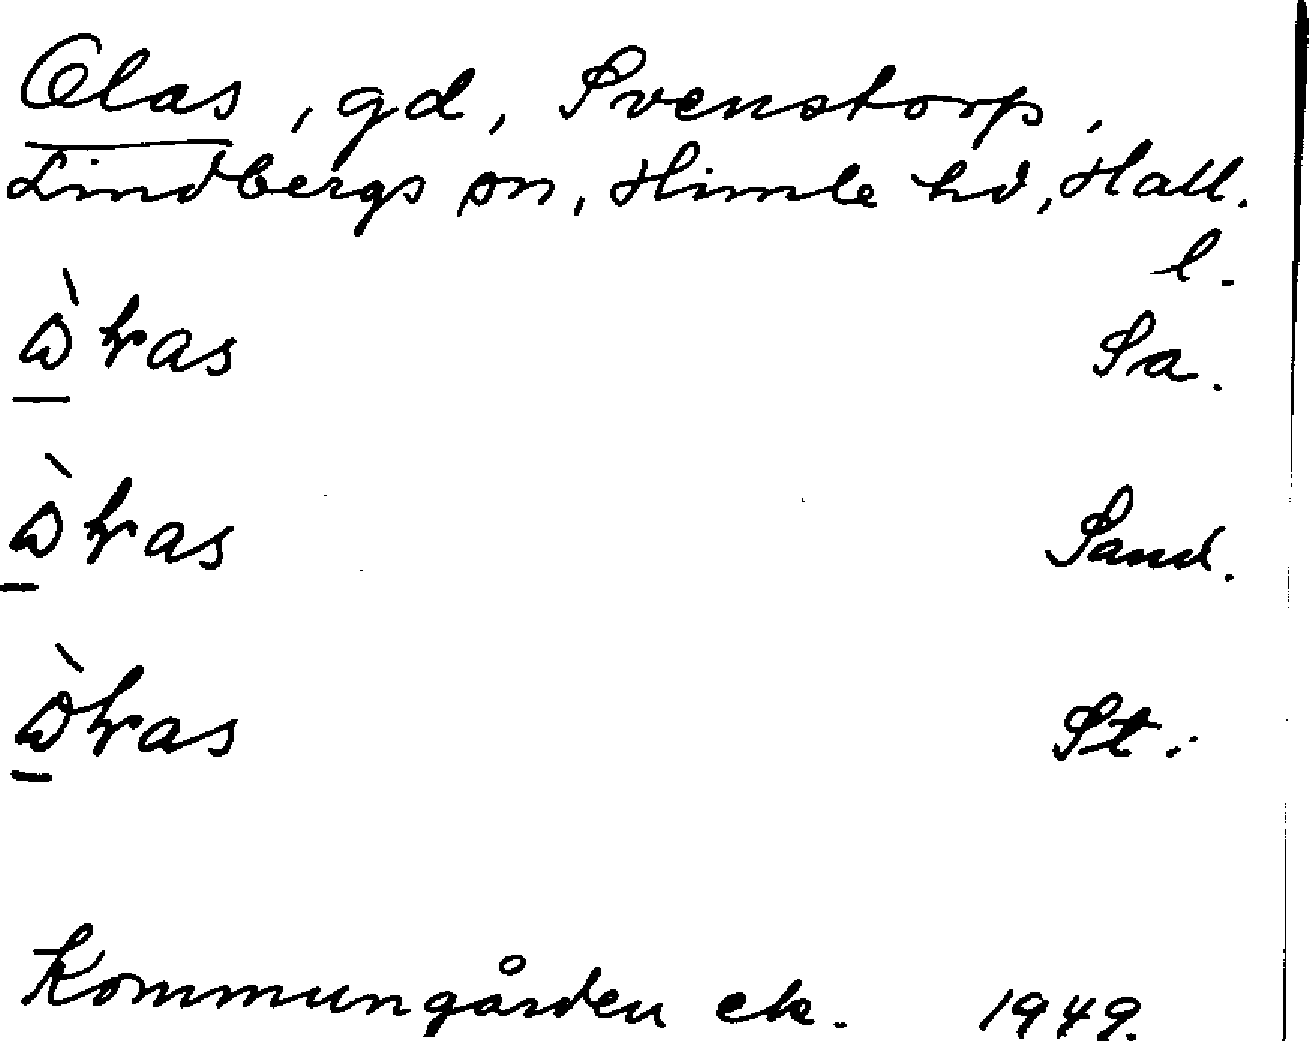 Olas, gd, Svenstorp,
Lindbergs sn, Himle hd, Hall.
l.
Sa.
Sand.
St.
Kommungården ek. 1949.